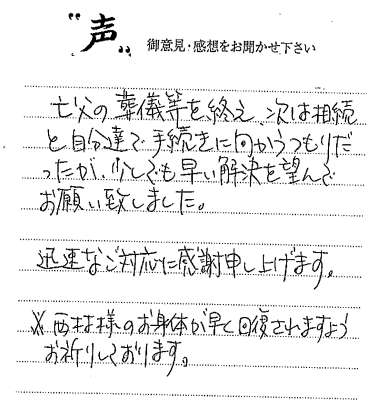 "声"
御意見・感想をお聞かせ下さい
亡父の葬儀等を終え、次は相続
と自分達で手続きに向かうつもりだ
ったが、少しでも早い解決を望んで
お願い致しました。
迅速なご対応に感謝申し上げます。
※西村様のお身体が早く回復されますよう
お祈りしております。